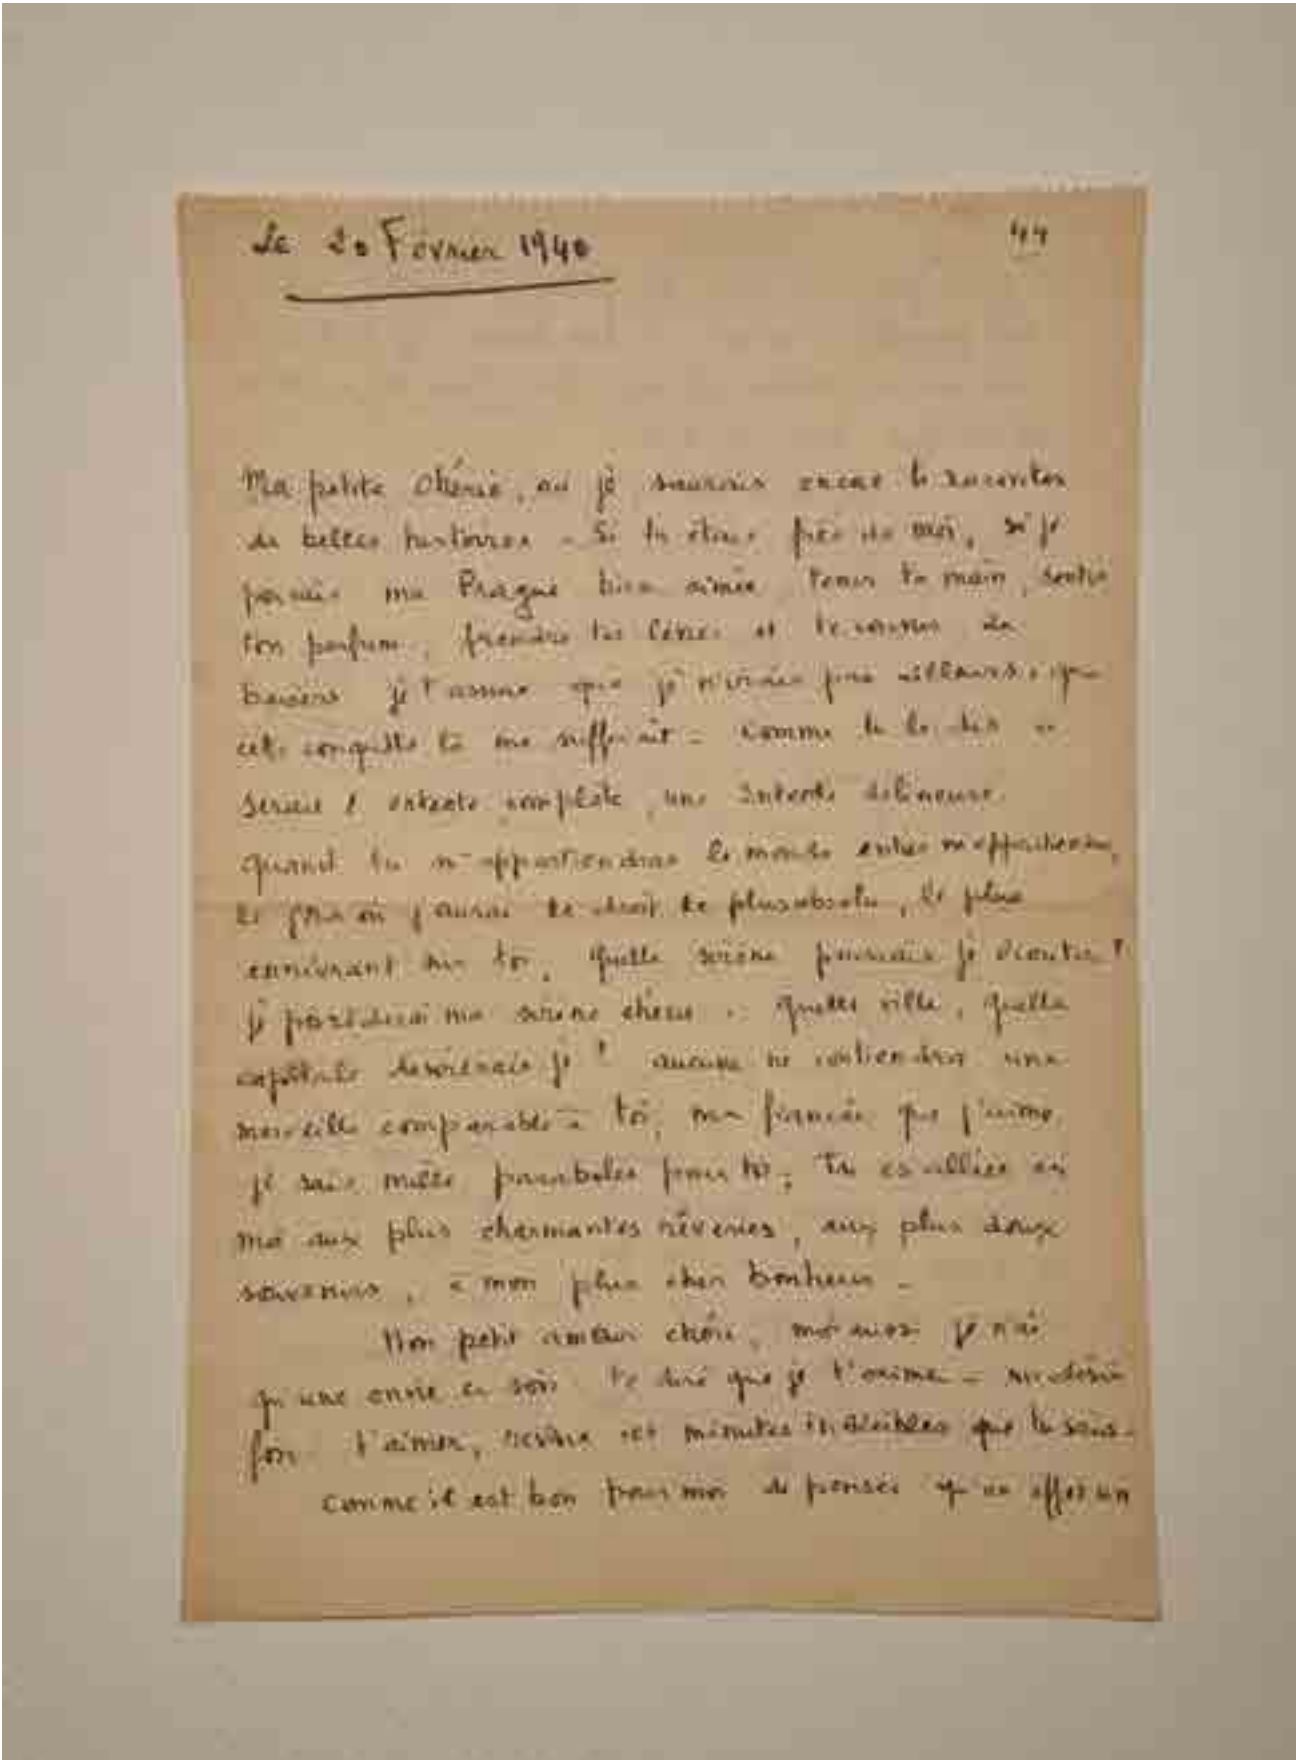 Le 20 Février 1940
44
Ma petite Chérie, oui je saurais encore te raconter
de belles histoires - Si tu étais près de moi, si je
pouvais ma Prague bien aimée, tenir ta main, sentir
ton parfum, prendre tes lèvres et te couvrir de
baisers je t'assure que je n'irais pas ailleurs, que
cette conquête là me suffirait - comme tu le dis ce
serait l'entente complète, une entente délicieuse.
quand tu m'appartiendras le monde entier m'appartiendra,
le jour où j'aurai le droit le plus absolu, le plus
enivrant sur toi, quelle sirène pourrais je écouter?
je possèderai ma sirène chérie. quelle ville, quelle
capitale désirerais je? aucune ne contiendra une
merveille comparable à toi, ma fiancée que j'aime,
je sais mille paraboles pour toi, Tu es alliée en
moi aux plus charmantes rêveries, aux plus doux
souvenirs, à mon plus cher bonheur -
Mon petit amour chéri, moi aussi je n'ai
qu'une envie ce soir te dire que je t'aime -
t'aimer, revivre ces minutes indicibles que tu sais -
comme il est bon pour moi de penser qu'en effet un